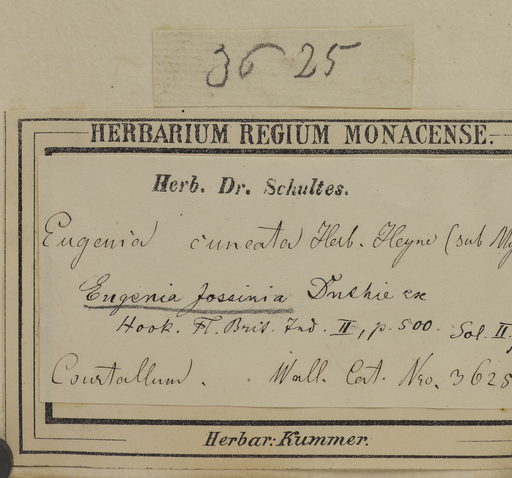 3625
HERBARIUM REGIUM MONACENSE.
Herb. Dr. Schultes.
Eugenia cuneata Herb. Heyne (sub My
Eugenia Jossinia Duthie ex
Hook. Fl. Brit. Ind. II, p. 500. Sol. II,
Courtallum. Wall. Cat. Nro. 3625
Herbar: Kummer.